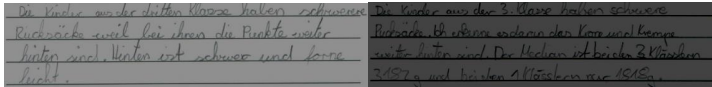 Die Kinder aus der dritten Klasse haben schwerere
Rucksäcke weil bei ihren die Punkte weiter
hinten sind. Hinten ist schwer und forne
leicht.
Die Kinder aus der 3. Klasse haben schwere
Rucksäcke. Ich erkenne es daran das Kiste und
weiter hinten sind. Der Median ist bei den 3 Klässlern
3192g und bei den 1 Klässlern nur 1918g.